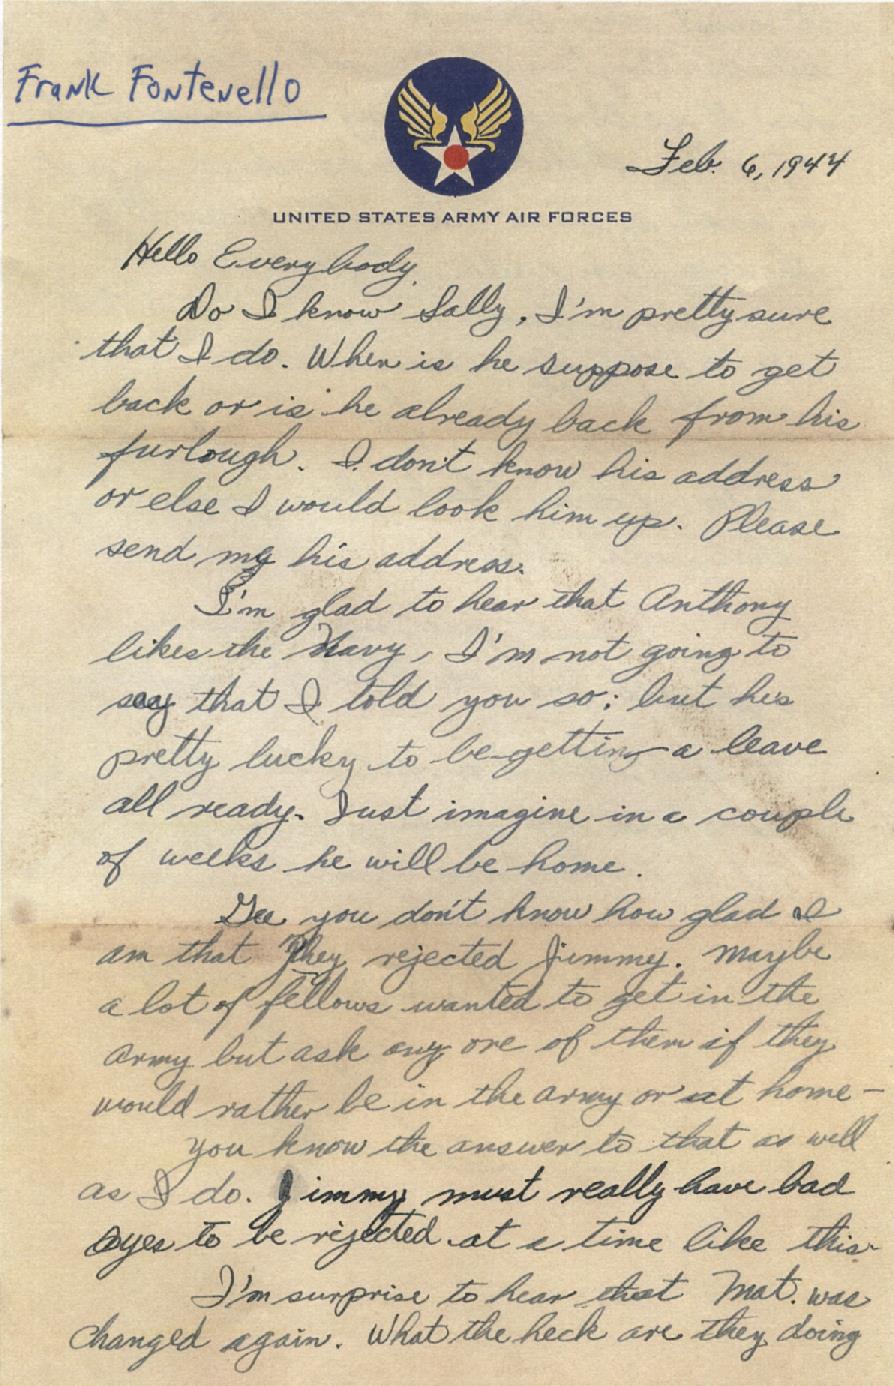 Frank Fontenello
Feb. 6, 1944
UNITED STATES ARMY AIR FORCES
Hello Everybody,
Do I know Sally, I'm pretty sure
that I do. When is he suppose to get
back or is he already back from his
furlough. I don't know his address
or else I would look him up. Please
send my his address.
I'm glad to hear that Anthony
likes the Navy, I'm not going to
say that I told you so; but his
pretty lucky to be getting a leave
all ready. Just imagine in a couple
of weeks he will be home.
Gee you don't know how glad I
am that they rejected Jimmy. Maybe
a lot of fellows wanted to get in the
army but ask any one of them if they
would rather be in the army or at home—
you know the answer to that as well
as I do. Jimmy must really have bad
eyes to be rejected at a time like this.
I'm surprise to hear that Mat. was
changed again. What the heck are they doing